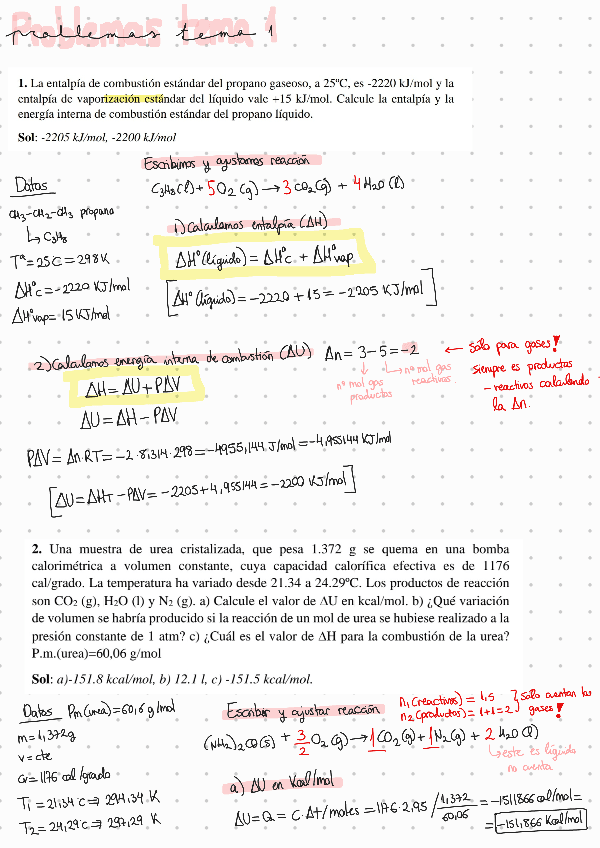 Problemas tema 1
1. La entalpía de combustión estándar del propano gaseoso, a 25ºC, es -2220 kJ/mol y la
entalpía de vaporización estándar del líquido vale +15 kJ/mol. Calcule la entalpía y la
energía interna de combustión estándar del propano líquido.
Sol: -2205 kJ/mol, -2200 kJ/mol
Escribimos y ajustamos reacción
Datos
C3H8(l) + 5O2(g) → 3CO2(g) + 4H2O(l)
CH3-CH2-CH3 propano
↳ C3H8
1) Calculamos entalpía (ΔH)
Tª = 25C = 298K
ΔHº(líquido) = ΔHºc + ΔHºvap
ΔHºc = -2220 KJ/mol
[ΔHº(líquido) = -2220 + 15 = -2205 KJ/mol]
ΔHºvap = 15 KJ/mol
2) Calculamos energía interna de combustión (ΔU) Δn = 3 - 5 = -2 ← Sólo para gases!
nº mol gas productos
nº mol gas reactivos
siempre es productos
- reactivos calculando
la Δn.
ΔH = ΔU + PΔV
ΔU = ΔH - PΔV
PΔV = Δn·RT = -2·8,314·298 = -4955,144 J/mol = -4,955144 KJ/mol
[ΔU = ΔHT - PΔV = -2205 + 4,955144 = -2200 KJ/mol]
2. Una muestra de urea cristalizada, que pesa 1.372 g se quema en una bomba
calorimétrica a volumen constante, cuya capacidad calorífica efectiva es de 1176
cal/grado. La temperatura ha variado desde 21.34 a 24.29ºC. Los productos de reacción
son CO2 (g), H2O (l) y N2 (g). a) Calcule el valor de ΔU en kcal/mol. b) ¿Qué variación
de volumen se habría producido si la reacción de un mol de urea se hubiese realizado a la
presión constante de 1 atm? c) ¿Cuál es el valor de ΔH para la combustión de la urea?
P.m.(urea)=60,06 g/mol
Sol: a)-151.8 kcal/mol, b) 12.1 l, c) -151.5 kcal/mol.
Datos Pm(urea) = 60,6 g/mol
Escribir y ajustar reacción
n1 (reactivos) = 1,5
n2 (productos) = 1+1 = 2
Sólo cuentan los
gases!
m = 1,372g
(NH2)2CO(s) + 3/2 O2(g) → 1CO2(g) + 1N2(g) + 2H2O(l)
v = cte
↳ este es líquido
no cuenta
Cv = 1176 cal/grado
a) ΔU en Kcal/mol
T1 = 21,34ºC ⇒ 294,34 K
T2 = 24,29ºC ⇒ 297,29 K
ΔU = Q = C·Δt/moles = 1176·2,95 / 1,372/60,06 = -151866 cal/mol =
= -151,866 Kcal/mol